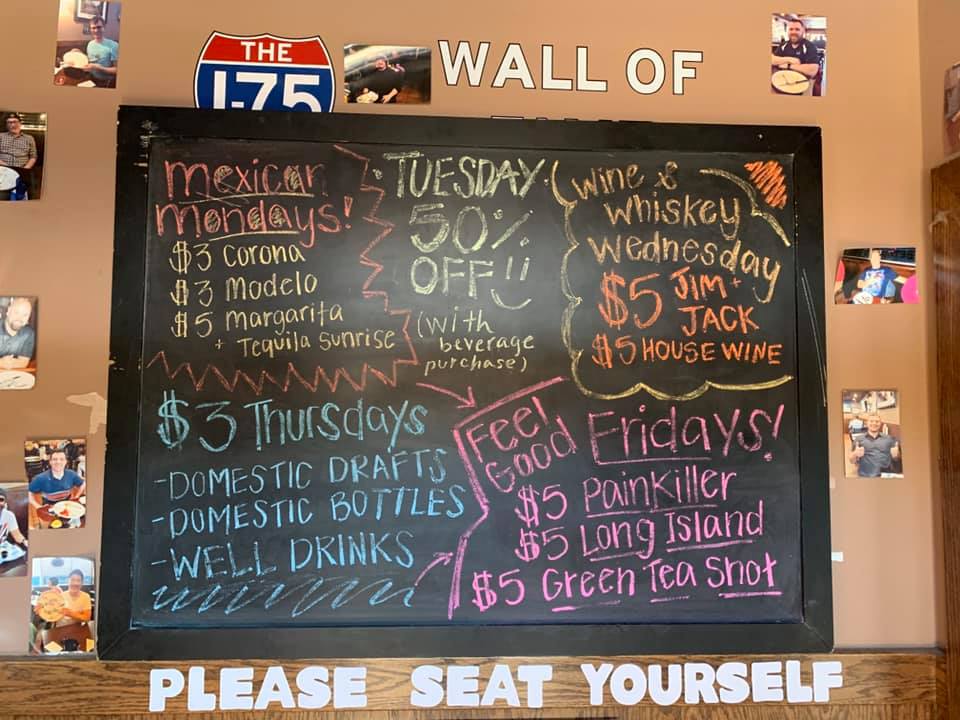 THE
I-75
WALL OF
Mexican
Mondays!
$3 Corona
$3 Modelo
$5 Margarita
+ Tequila Sunrise
TUESDAY
50%
OFF!!
(with
beverage
purchase)
Wine &
Whiskey
Wednesday
$5 JIM +
JACK
$5 HOUSE WINE
$3 Thursdays
-DOMESTIC DRAFTS
-DOMESTIC BOTTLES
-WELL DRINKS
Feel
Good Fridays!
$5 Painkiller
$5 Long Island
$5 Green Tea Shot
PLEASE SEAT YOURSELF